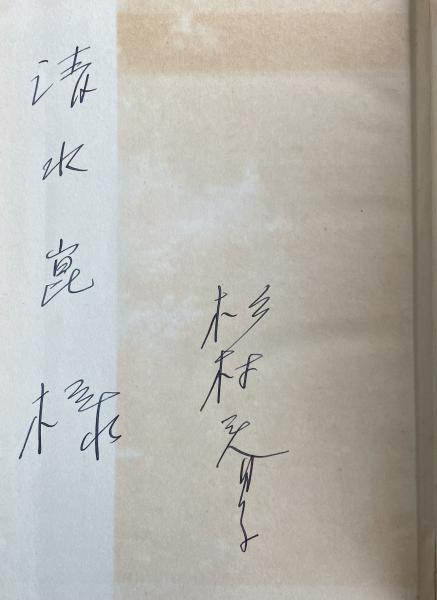 杉村春子
清水崑様